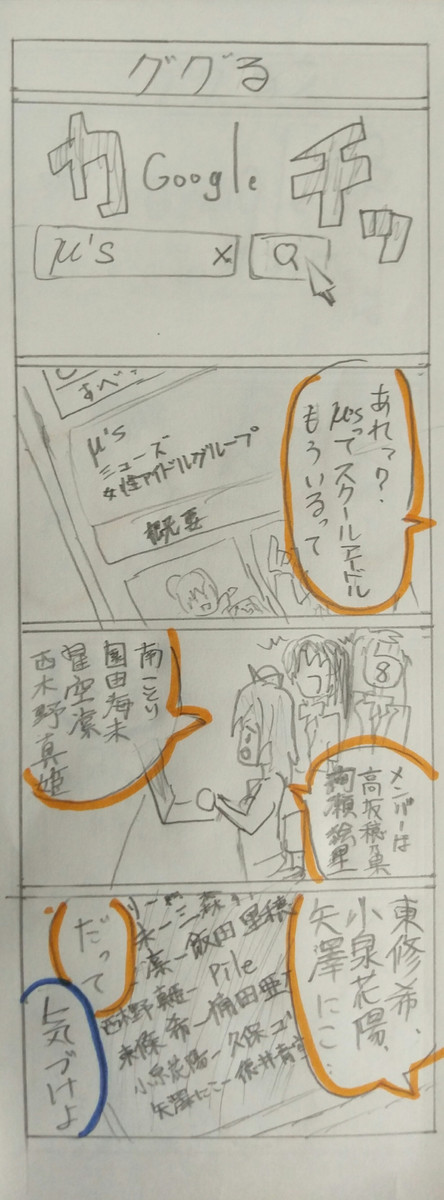 ググる
カ
チッ
Google
μ's
×
あれっ?
μ'sってスクールアイドル
もういるって
すべて
μ's
ミューズ
女性アイドルグループ
概要
メンバーは
高坂穂乃果
絢瀬絵里
8
南ことり
園田海未
星空凛
西木野真姫
東條希、
小泉花陽、
矢澤にこ…
だって
飯田里穂
凛
西木野真姫 Pile
東條希
小泉花陽ー久保ユ
矢澤にこー徳井青空
気づけよ